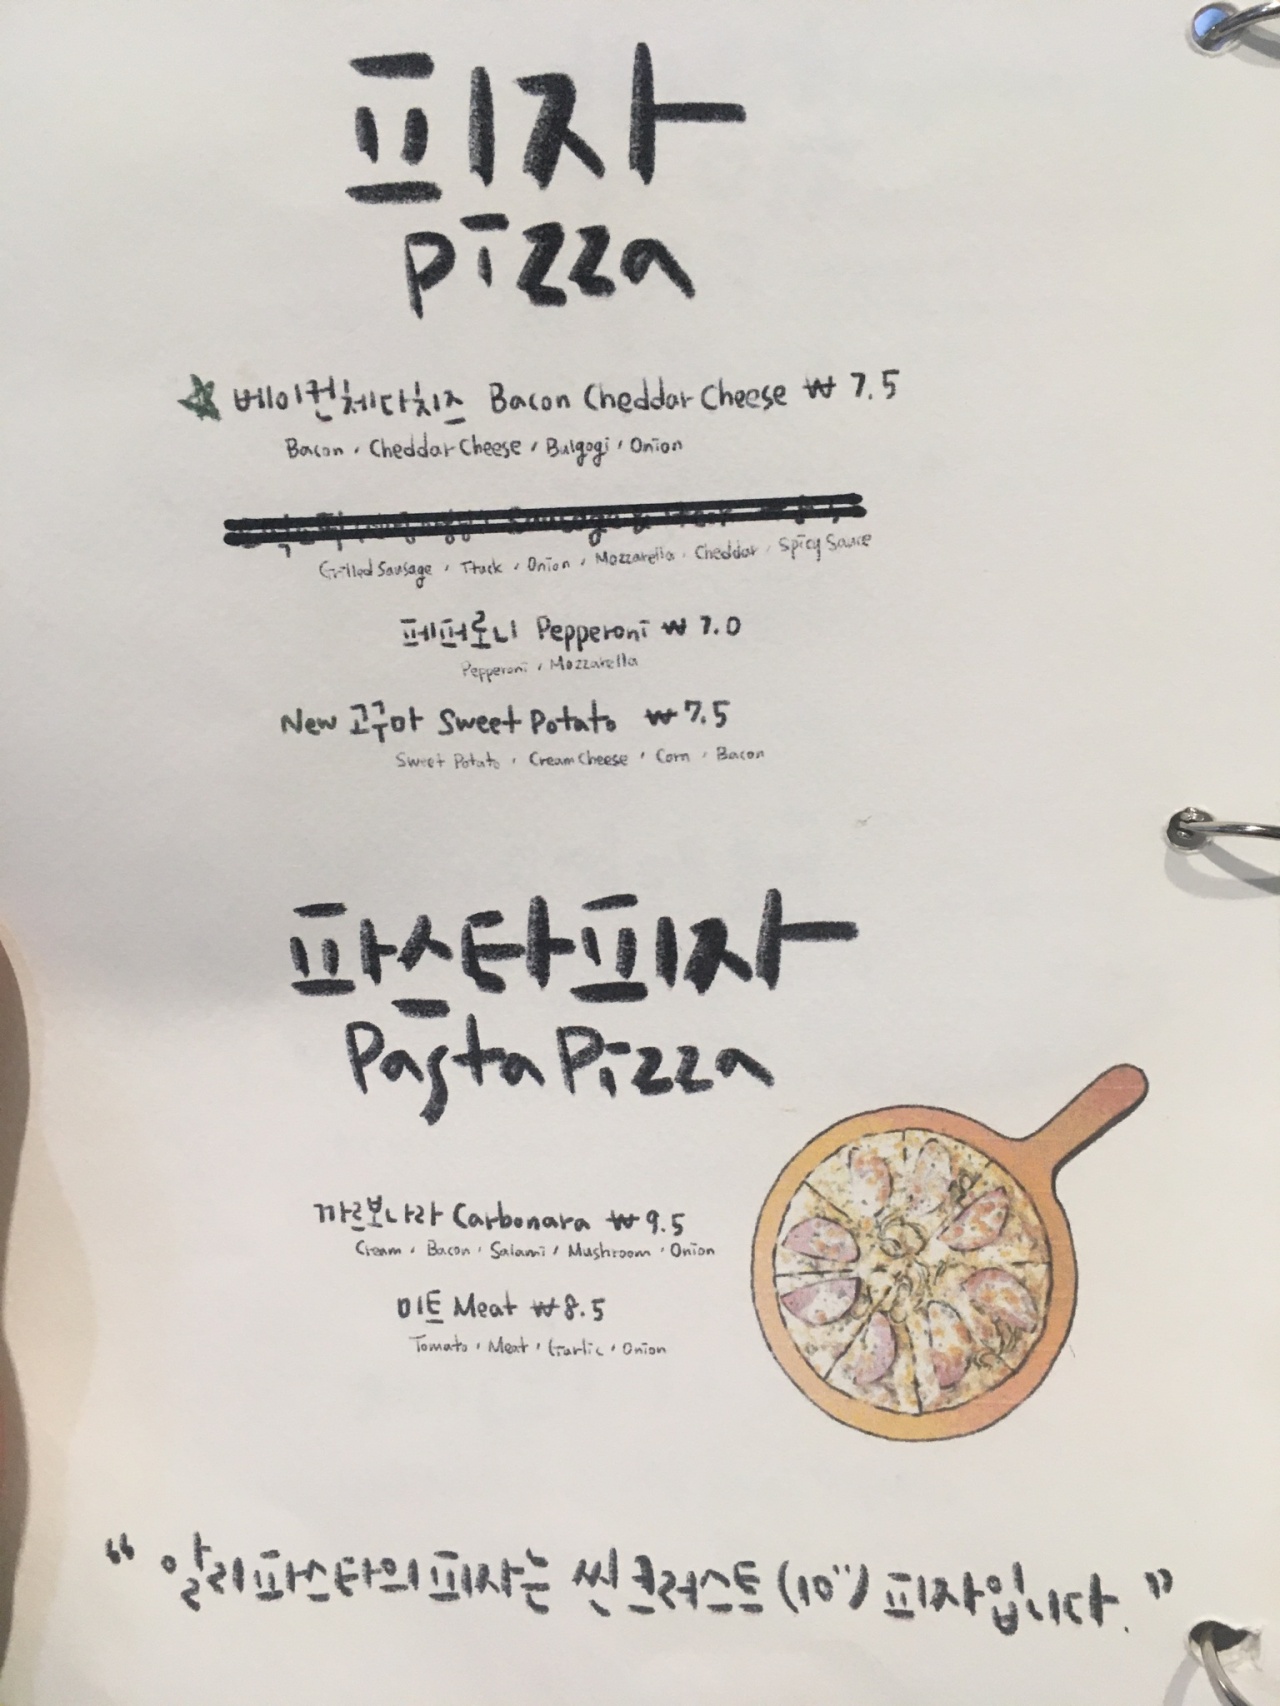 피자
pizza
베이컨체다치즈 Bacon Cheddar Cheese ₩ 7.5
Bacon, Cheddar Cheese, Bulgogi, Onion
Grilled Sausage, Ttuck, Onion, Mozzarella, Cheddar, Spicy Sauce
페퍼로니 Pepperoni ₩ 7.0
Pepperoni, Mozzarella
New 고구마 Sweet Potato ₩ 7.5
Sweet Potato, Cream Cheese, Corn, Bacon
파스타피자
Pasta Pizza
까르보나라 Carbonara ₩ 9.5
Cream, Bacon, Salami, Mushroom, Onion
미트 Meat ₩ 8.5
Tomato, Meat, Garlic, Onion
“ 알리파스타의 피자는 씬크러스트 (10") 피자입니다. ”